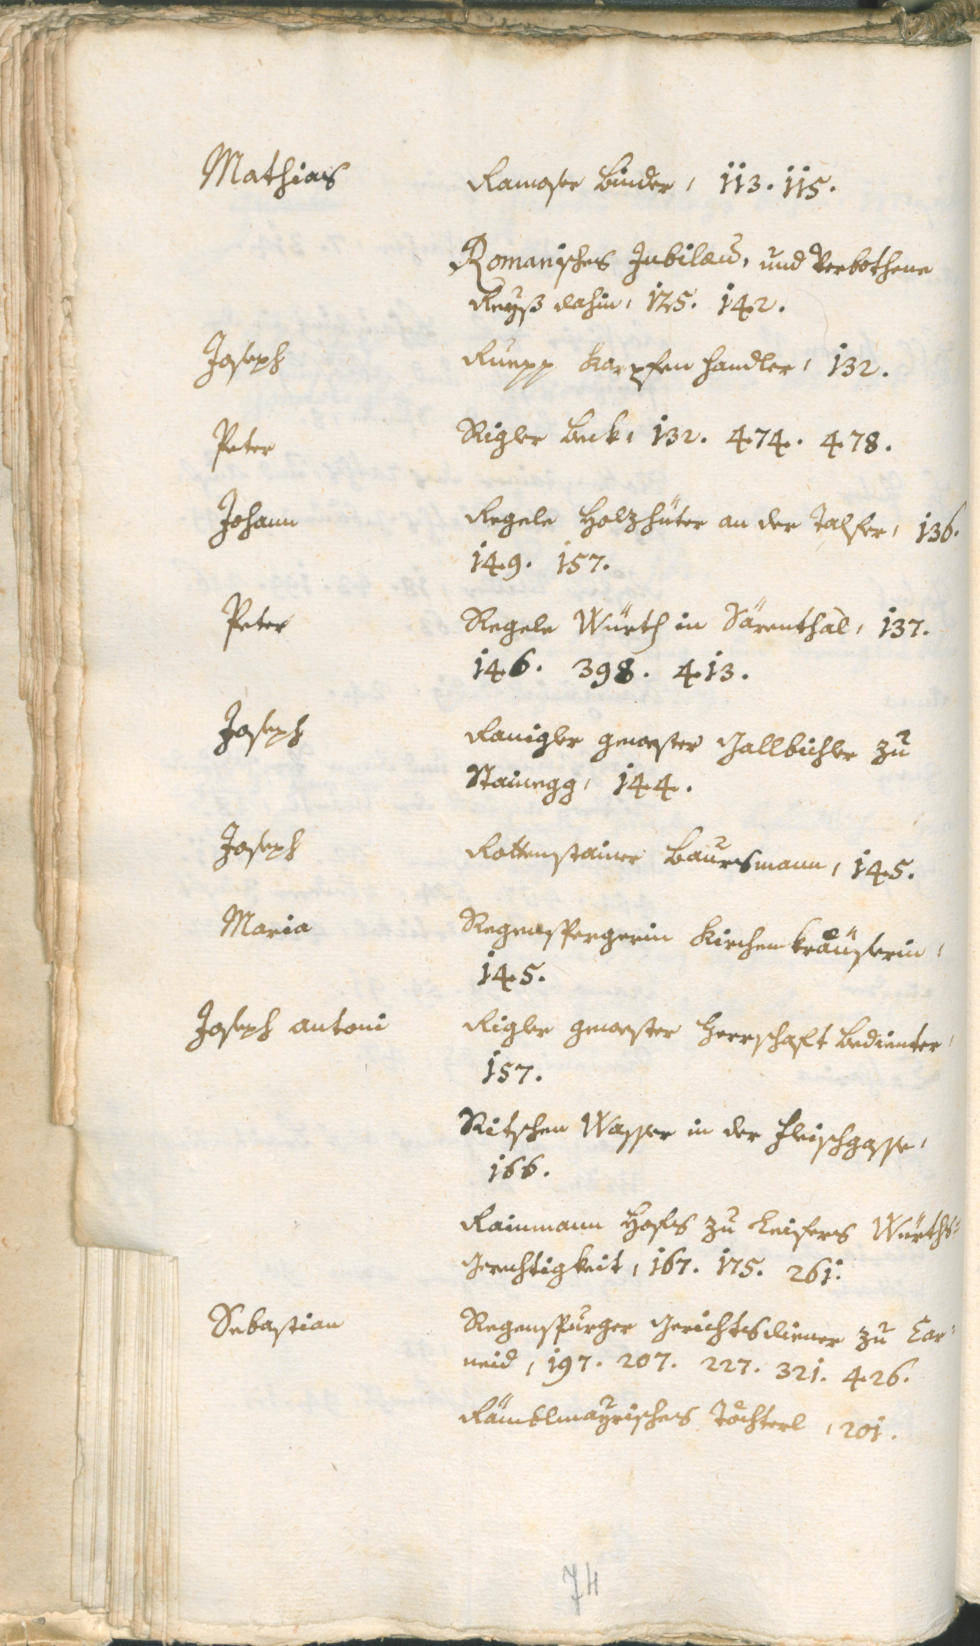 Mathias Ramoser Binder, 113. 115.
Romanisches Jubilæu, und Verbothene
Reyß dahin, 125. 142.
Joseph Ruepp Karpfen handler, 132.
Peter Rigler Beck, 132. 474. 478.
Johann Regele Holzhüter an der Talfer, 136.
149. 157.
Peter Regele Würth in Särenthal, 137.
146. 398. 413.
Joseph Ranigler gewester Gallbichler zu
Stainegg, 144.
Joseph Rottenstainer Baursmann, 145.
Maria Regenspergerin Kirchen
145.
Joseph Antoni Rigler gewester Herrschaft Bedienter,
157.
Ritschen Wasser in der Fleischgasse,
166.
Rainmann Hofs zu Leifers Würths-
Gerechtigkeit, 167. 175. 261.
Sebastian Regenspurger Gerichtsdiener zu Car-
neid, 197. 207. 227. 321. 426.
Rämblmayrisches Töchterl, 201.
74